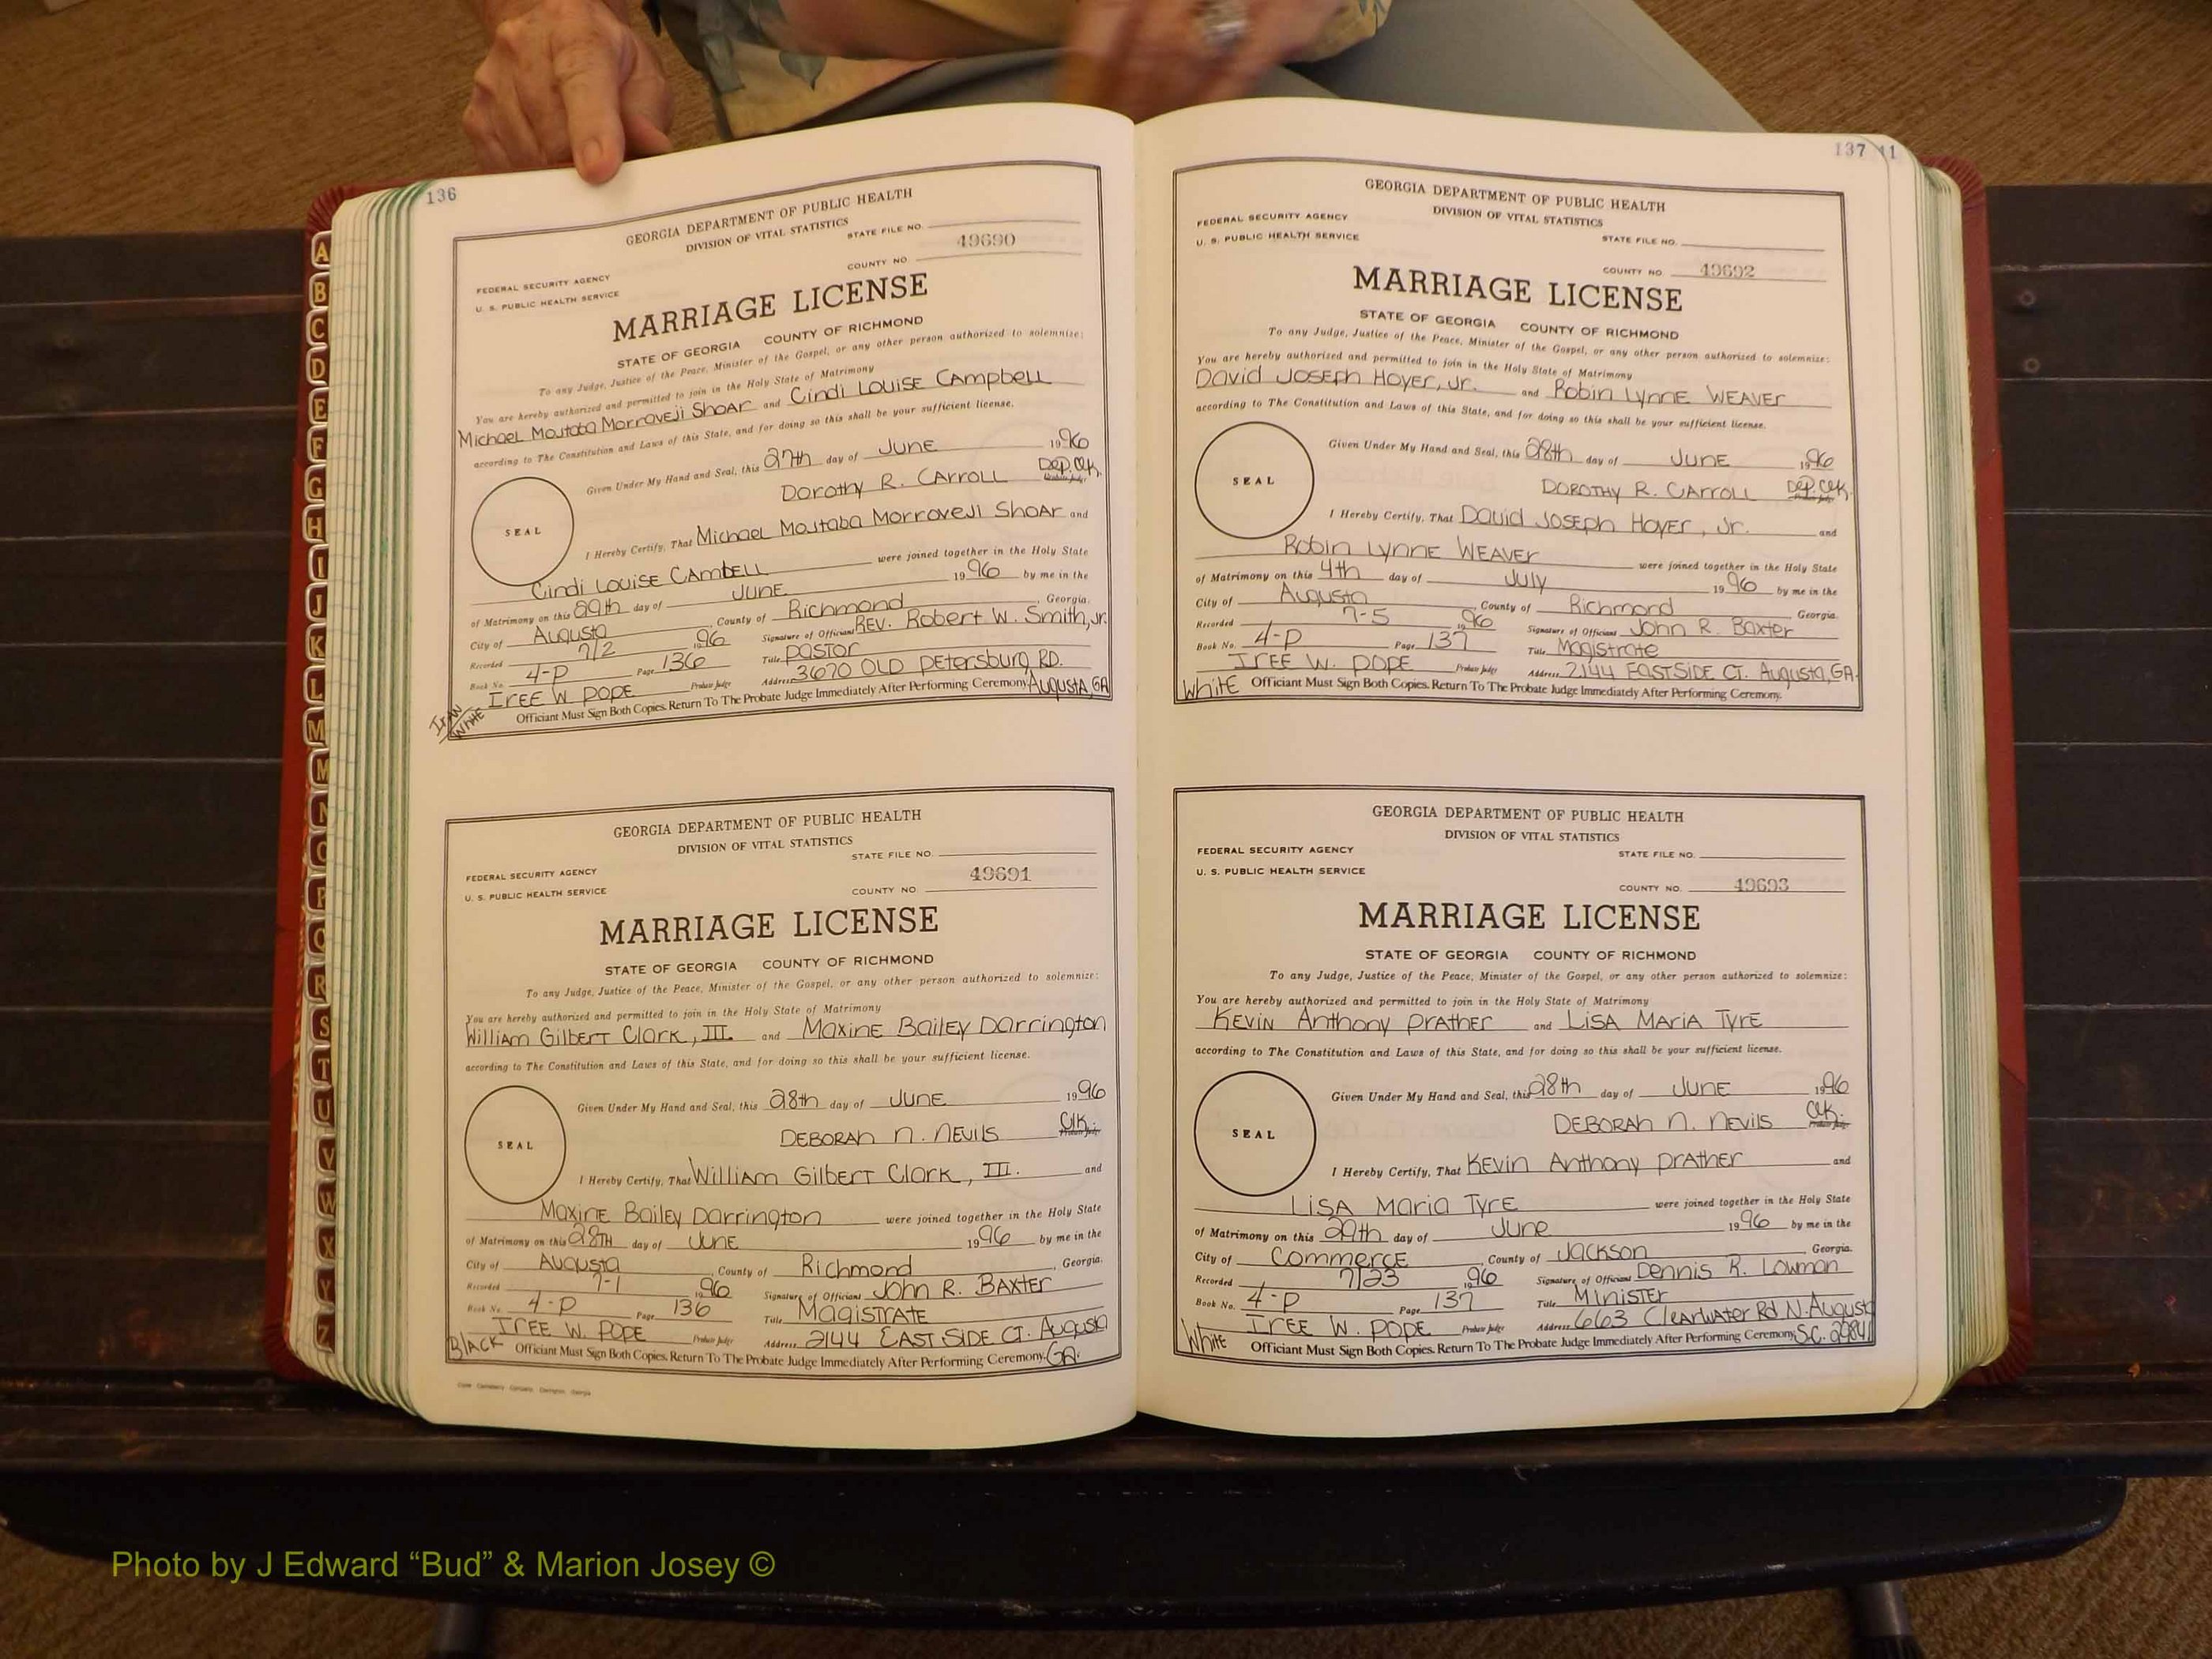 136
GEORGIA DEPARTMENT OF PUBLIC HEALTH
DIVISION OF VITAL STATISTICS
STATE FILE NO.
FEDERAL SECURITY AGENCY
U. S. PUBLIC HEALTH SERVICE
COUNTY NO 49690
MARRIAGE LICENSE
STATE OF GEORGIA COUNTY OF RICHMOND
To any Judge, Justice of the Peace, Minister of the Gospel, or any other person authorized to solemnize:
You are hereby authorized and permitted to join in the Holy State of Matrimony
Michael Mojtaba Morraveji Shoar and Cindi Louise Campbell
according to The Constitution and Laws of this State, and for doing so this shall be your sufficient license.
Given Under My Hand and Seal, this 27th day of June 1996
Dorothy R. Carroll Dep. Clk.
SEAL
I Hereby Certify, That Michael Mojtaba Morraveji Shoar and
Cindi Louise Cambell were joined together in the Holy State
of Matrimony on this 29th day of June 1996 by me in the
City of Augusta, County of Richmond, Georgia.
Recorded 7/2 1996 Signature of Officiant Rev. Robert W. Smith, Jr.
Book No. 4-P Page 136 Title Pastor
Iree W. Pope Probate Judge Address 3670 Old Petersburg Rd.
Iran/White Officiant Must Sign Both Copies. Return To The Probate Judge Immediately After Performing Ceremony. Augusta, GA
GEORGIA DEPARTMENT OF PUBLIC HEALTH
DIVISION OF VITAL STATISTICS
STATE FILE NO.
FEDERAL SECURITY AGENCY
U. S. PUBLIC HEALTH SERVICE
COUNTY NO 49691
MARRIAGE LICENSE
STATE OF GEORGIA COUNTY OF RICHMOND
To any Judge, Justice of the Peace, Minister of the Gospel, or any other person authorized to solemnize:
You are hereby authorized and permitted to join in the Holy State of Matrimony
William Gilbert Clark, III. and Maxine Bailey Darrington
according to The Constitution and Laws of this State, and for doing so this shall be your sufficient license.
Given Under My Hand and Seal, this 28th day of June 1996
Deborah N. Nevils Clk.
SEAL
I Hereby Certify, That William Gilbert Clark, III. and
Maxine Bailey Darrington were joined together in the Holy State
of Matrimony on this 28th day of June 1996 by me in the
City of Augusta, County of Richmond, Georgia.
Recorded 7-1 1996 Signature of Officiant John R. Baxter
Book No. 4-P Page 136 Title Magistrate
Iree W. Pope Probate Judge Address 2144 East Side Ct. Augusta
Black Officiant Must Sign Both Copies. Return To The Probate Judge Immediately After Performing Ceremony. GA.
137 11
GEORGIA DEPARTMENT OF PUBLIC HEALTH
DIVISION OF VITAL STATISTICS
FEDERAL SECURITY AGENCY
U. S. PUBLIC HEALTH SERVICE
STATE FILE NO.
COUNTY NO 49692
MARRIAGE LICENSE
STATE OF GEORGIA COUNTY OF RICHMOND
To any Judge, Justice of the Peace, Minister of the Gospel, or any other person authorized to solemnize:
You are hereby authorized and permitted to join in the Holy State of Matrimony
David Joseph Hoyer, Jr. and Robin Lynne Weaver
according to The Constitution and Laws of this State, and for doing so this shall be your sufficient license.
Given Under My Hand and Seal, this 28th day of June 1996
Dorothy R. Carroll Dep. Clk.
SEAL
I Hereby Certify, That David Joseph Hoyer, Jr. and
Robin Lynne Weaver were joined together in the Holy State
of Matrimony on this 4th day of July 1996 by me in the
City of Augusta, County of Richmond Georgia.
Recorded 7-5 1996 Signature of Officiant John R. Baxter
Book No. 4-P Page 137 Title Magistrate
Iree W. Pope Probate Judge Address 2144 East Side Ct. Augusta, GA.
White Officiant Must Sign Both Copies. Return To The Probate Judge Immediately After Performing Ceremony.
GEORGIA DEPARTMENT OF PUBLIC HEALTH
DIVISION OF VITAL STATISTICS
FEDERAL SECURITY AGENCY
STATE FILE NO.
U. S. PUBLIC HEALTH SERVICE
COUNTY NO. 49693
MARRIAGE LICENSE
STATE OF GEORGIA COUNTY OF RICHMOND
To any Judge, Justice of the Peace, Minister of the Gospel, or any other person authorized to solemnize:
You are hereby authorized and permitted to join in the Holy State of Matrimony
Kevin Anthony Prather and Lisa Maria Tyre
according to The Constitution and Laws of this State, and for doing so this shall be your sufficient license.
Given Under My Hand and Seal, this 28th day of June 1996
Deborah N. Nevils Clk.
SEAL
I Hereby Certify, That Kevin Anthony Prather and
Lisa Maria Tyre were joined together in the Holy State
of Matrimony on this 29th day of June 1996 by me in the
City of Commerce, County of Jackson Georgia.
Recorded 7/23 1996 Signature of Officiant Dennis R. Lowman
Book No. 4-P Page 137 Title Minister
Iree W. Pope Probate Judge Address 663 Clearwater Rd N. Augusta
White Officiant Must Sign Both Copies. Return To The Probate Judge Immediately After Performing Ceremony. S.C. 29841
A
B
C
D
E
F
G
H
I
J
K
L
M
M
N
O
P
Q
R
S
T
U
V
W
X
Y
Z
Photo by J Edward “Bud” & Marion Josey ©